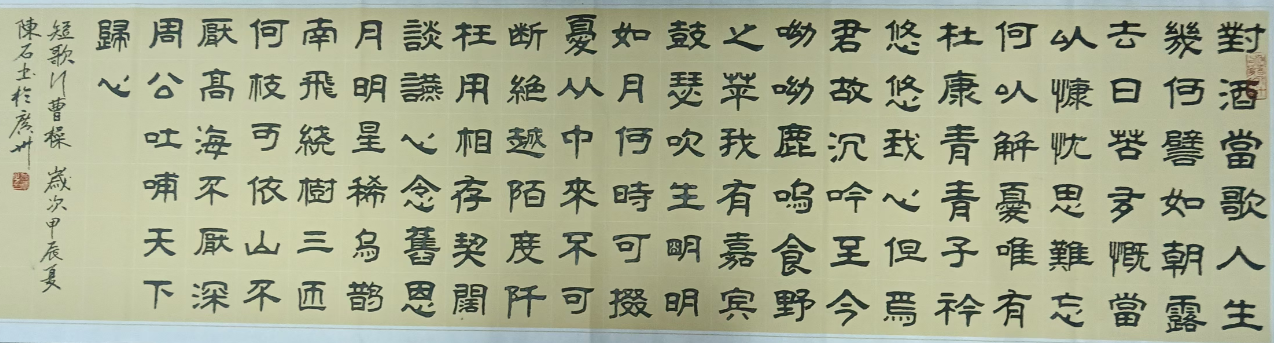 對酒當歌人生
幾何譬如朝露
去日苦多慨當
以慷忱思難忘
何以解憂唯有
杜康青青子衿
悠悠我心但焉
君故沉吟至今
呦呦鹿鳴食野
之苹我有嘉宾
鼓瑟吹生明明
如月何時可掇
憂从中來不可
断絶越陌度阡
枉用相存契闊
談讌心念舊恩
月明星稀烏鹊
南飛繞樹三匝
何枝可依山不
厭高海不厭深
周公吐哺天下
歸心
短歌行曹操 歲次甲辰夏
陳石土於廣州